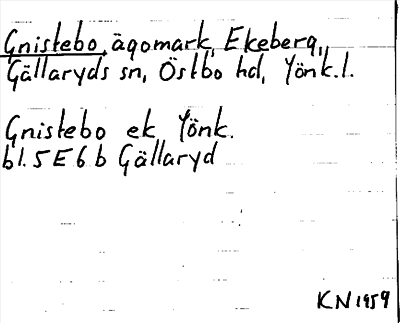 Gnistebo, ägomark, Ekeberg,
Gällaryds sn, Östbo hd, Jönk.l.
Gnistebo ek Jönk.
bl. 5 E 6 b Gällaryd
KN 1959